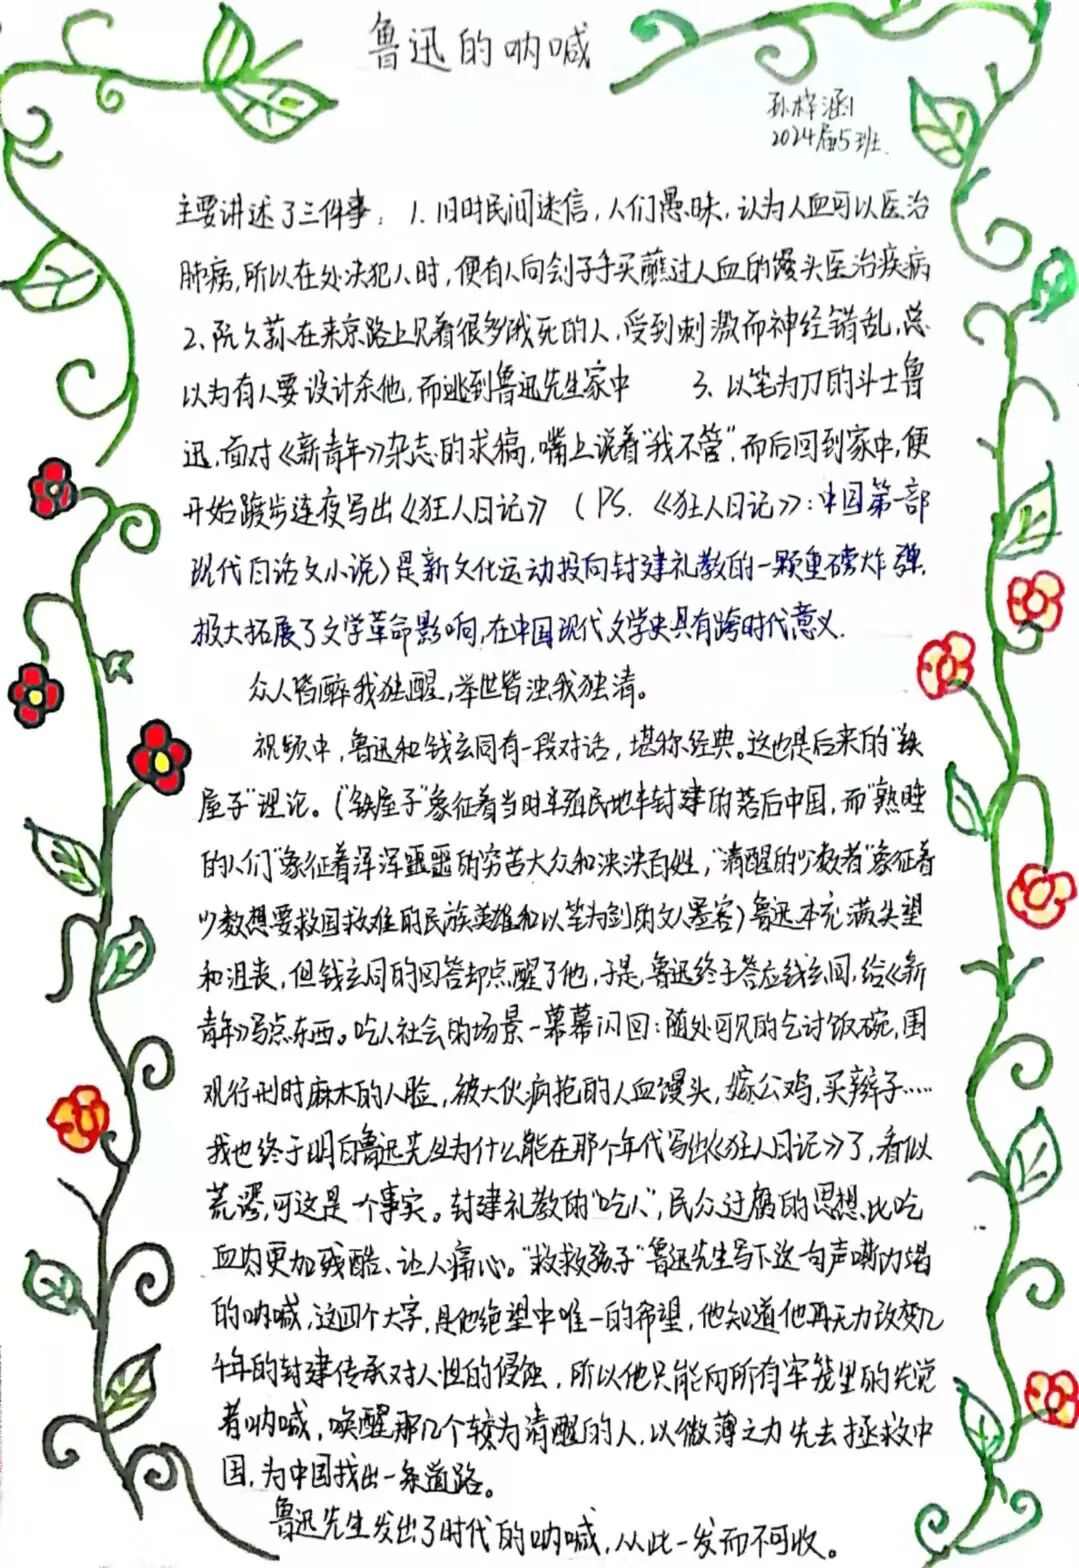 鲁迅的呐喊
孙梓涵
2024届5班
主要讲述了三件事：1. 旧时民间迷信，人们愚昧，认为人血可以医治
肺病，所以在处决犯人时，便有人向刽子手买蘸过人血的馒头医治疾病
2、阮久荪在来京路上见着很多饿死的人，受到刺激而神经错乱，总
以为有人要设计杀他，而逃到鲁迅先生家中 3. 以笔为刀的斗士鲁
迅，面对《新青年》杂志的求稿，嘴上说着“我不管”，而后回到家中，便
开始踱步连夜写出《狂人日记》（PS.《狂人日记》：中国第一部
现代白话文小说）是新文化运动投向封建礼教的一颗重磅炸弹，
极大拓展了文学革命影响，在中国现代文学史具有跨时代意义.
众人皆醉我独醒，举世皆浊我独清。
视频中，鲁迅和钱玄同有一段对话，堪称经典。这也是后来的“铁
屋子”理论。（“铁屋子”象征着当时半殖民地半封建的落后中国，而“熟睡
的人们”象征着浑浑噩噩的穷苦大众和泱泱百姓，“清醒的少数者”象征着
少数想要救国救难的民族英雄和以笔为剑的文人墨客）鲁迅本充满失望
和沮丧，但钱玄同的回答却点醒了他，于是，鲁迅终于答应钱玄同，给《新
青年》写点东西。吃人社会的场景一幕幕闪回：随处可见的乞讨饭碗，围
观行刑时麻木的人脸，被大伙疯抢的人血馒头，嫁公鸡，买辫子……
我也终于明白鲁迅先生为什么能在那个年代写出《狂人日记》了，看似
荒谬，可这是一个事实。封建礼教的“吃人”，民众迂腐的思想，比吃
血肉更加残酷、让人痛心。“救救孩子”鲁迅先生写下这句声嘶力竭
的呐喊，这四个大字，是他绝望中唯一的希望，他知道他再无力改变几
千年的封建传承对人性的侵蚀，所以他只能向所有牢笼里的先觉
者呐喊，唤醒那几个较为清醒的人，以微薄之力先去拯救中
国，为中国找出一条道路。
鲁迅先生发出了时代的呐喊，从此一发而不可收。